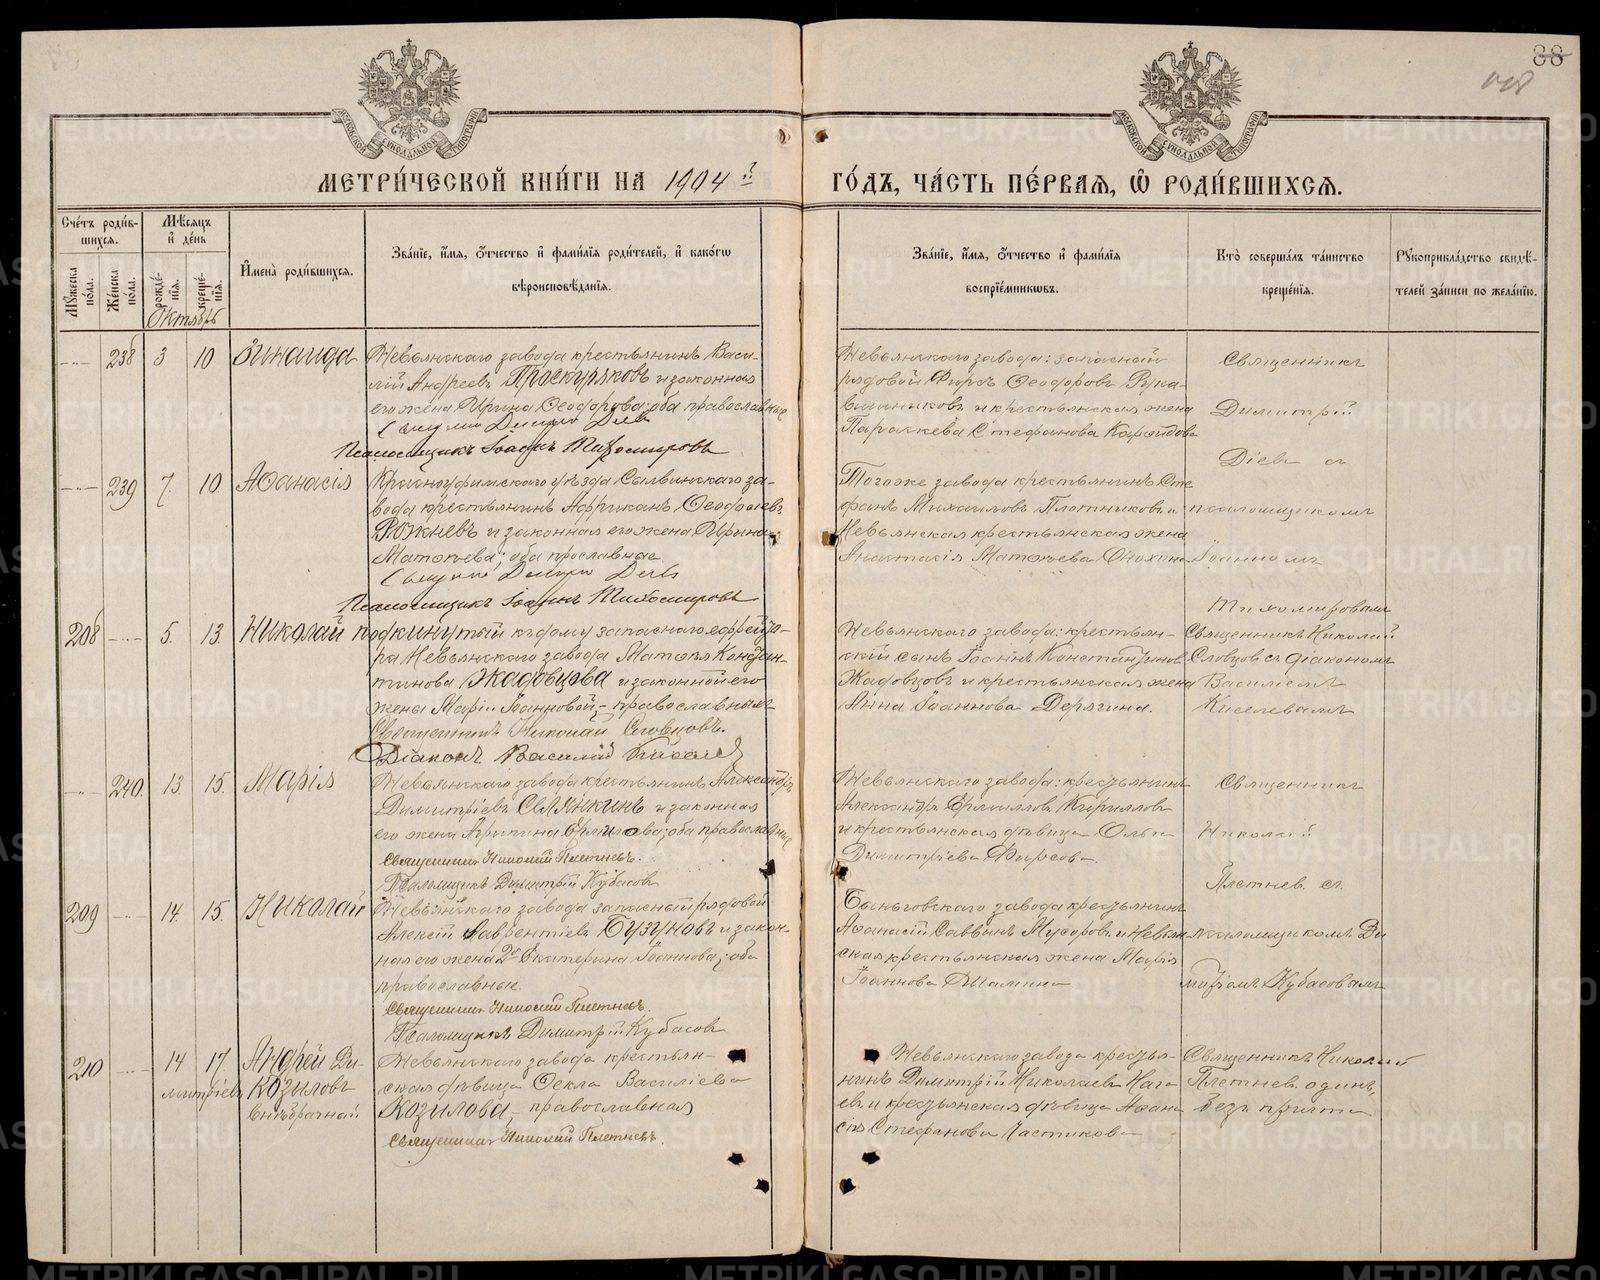 88
МЕТРИ́ЧЕСКОЙ КНИ́ГИ НА 1904й ГО́ДЪ, ЧА́СТЬ ПЕ́РВАЯ, Ѡ РОДИ́ВШИХСЯ.
Сче́тъ роди́вшихся.
Мѣ́сяцъ и҆ де́нь
Мꙋ́жеска по́ла.
Же́нска по́ла.
рожде́нїя.
креще́нїя.
И҆мена̀ роди́вшихся.
Зва́нїе, и҆́мя, ѻ҆́тчество и҆ фами́лїя роди́телей, и҆ како́гѡ
вѣроисповѣ́данїя.
Зва́нїе, и҆́мя, ѻ҆́тчество и҆ фами́лїя
воспрїе́мникѡвъ.
Кто̀ соверша́лъ та́инство
креще́нїя.
Рꙋкоприкла́дство свидѣ́-
телей за́писи по жела́нїю.
Октябрь
238 3 10 Зинаида
Невьянскаго завода крестьянинъ Васи-
лій Андреевъ Проскуряковъ и законная
его жена Ирина Ѳеодорова; оба православные
Священникъ Димитрій Діевъ
Псаломщикъ Іоаннъ Тихомировъ
Невьянскаго завода: запасный
рядовой Фирсъ Ѳеодоровъ Рука-
вишниковъ и крестьянская жена
Параскева Стефанова
Священникъ
Димитрій
Діевъ съ
239 7. 10 Аѳанасія
Красноуфимскаго уѣзда Сылвинскаго за-
вода крестьянинъ Африканъ
и законная его жена Ирина
Матѳѣева; оба православные
Священникъ Димитрій Діевъ
Псаломщикъ Іоаннъ Тихомировъ
Того же завода крестьянинъ Сте-
фанъ Михаиловъ Плотниковъ и
Невьянская крестьянская жена
Анастасія Матѳѣева
псаломщикомъ
Іоанномъ
Тихомировымъ
208 5. 13. Николай
подкинутый къ дому запаснаго ефрейто-
ра Невьянскаго завода Матѳея Констан-
тинова Жадовцова и законной его
жены Маріи Іоанновой, - православныхъ
Священникъ Николай Словцовъ.
Діаконъ Василій Киселевъ
Невьянскаго завода: крестьян-
скій сынъ Іоаннъ Константиновъ
Жадовцовъ и крестьянская жена
Анна Іоаннова Дерягина.
Священникъ Николай
Словцовъ съ діакономъ
Василіемъ
Киселевымъ
240. 13 15. Марія
Невьянскаго завода крестьянинъ Александръ
Димитріевъ Салянкинъ и законная
его жена Агрипина Ермилова; оба православные
Священникъ Николай Плетневъ.
Псаломщикъ Димитрій Кубасовъ
Невьянскаго завода: крестьянинъ
Александръ Ермиловъ Кирилловъ
и крестьянская дѣвица Ольга
Димитріева Фирсова.
Священникъ
Николай
Плетневъ съ
209 14. 15. Николай
Невьянскаго завода запасный рядовой
Алексій Лаврентіевъ Бузуновъ и закон-
ная его жена 2й Екатерина Іоаннова; оба
православные.
Священникъ Николай Плетневъ.
Псаломщикъ Димитрій Кубасовъ
Быньговскаго завода крестьянинъ
Аѳанасій Саввинъ Мусоровъ и Невьян-
ская крестьянская жена Марія
Іоаннова Шалина
псаломщикомъ Ди-
митріемъ Кубасовымъ
210 14 17. Андрей Ди-
митріевъ Козыловъ
внѣбрачный
Невьянскаго завода крестьян-
ская дѣвица Ѳекла Василіева
Козилова, - православная
Священникъ Николай Плетневъ.
Невьянскаго завода крестья-
нинъ Димитрій Николаевъ Нага-
евъ и крестьянская дѣвица Аѳана-
сія Стефанова Частикова
Священникъ Николай
Плетневъ одинъ,
безъ причта